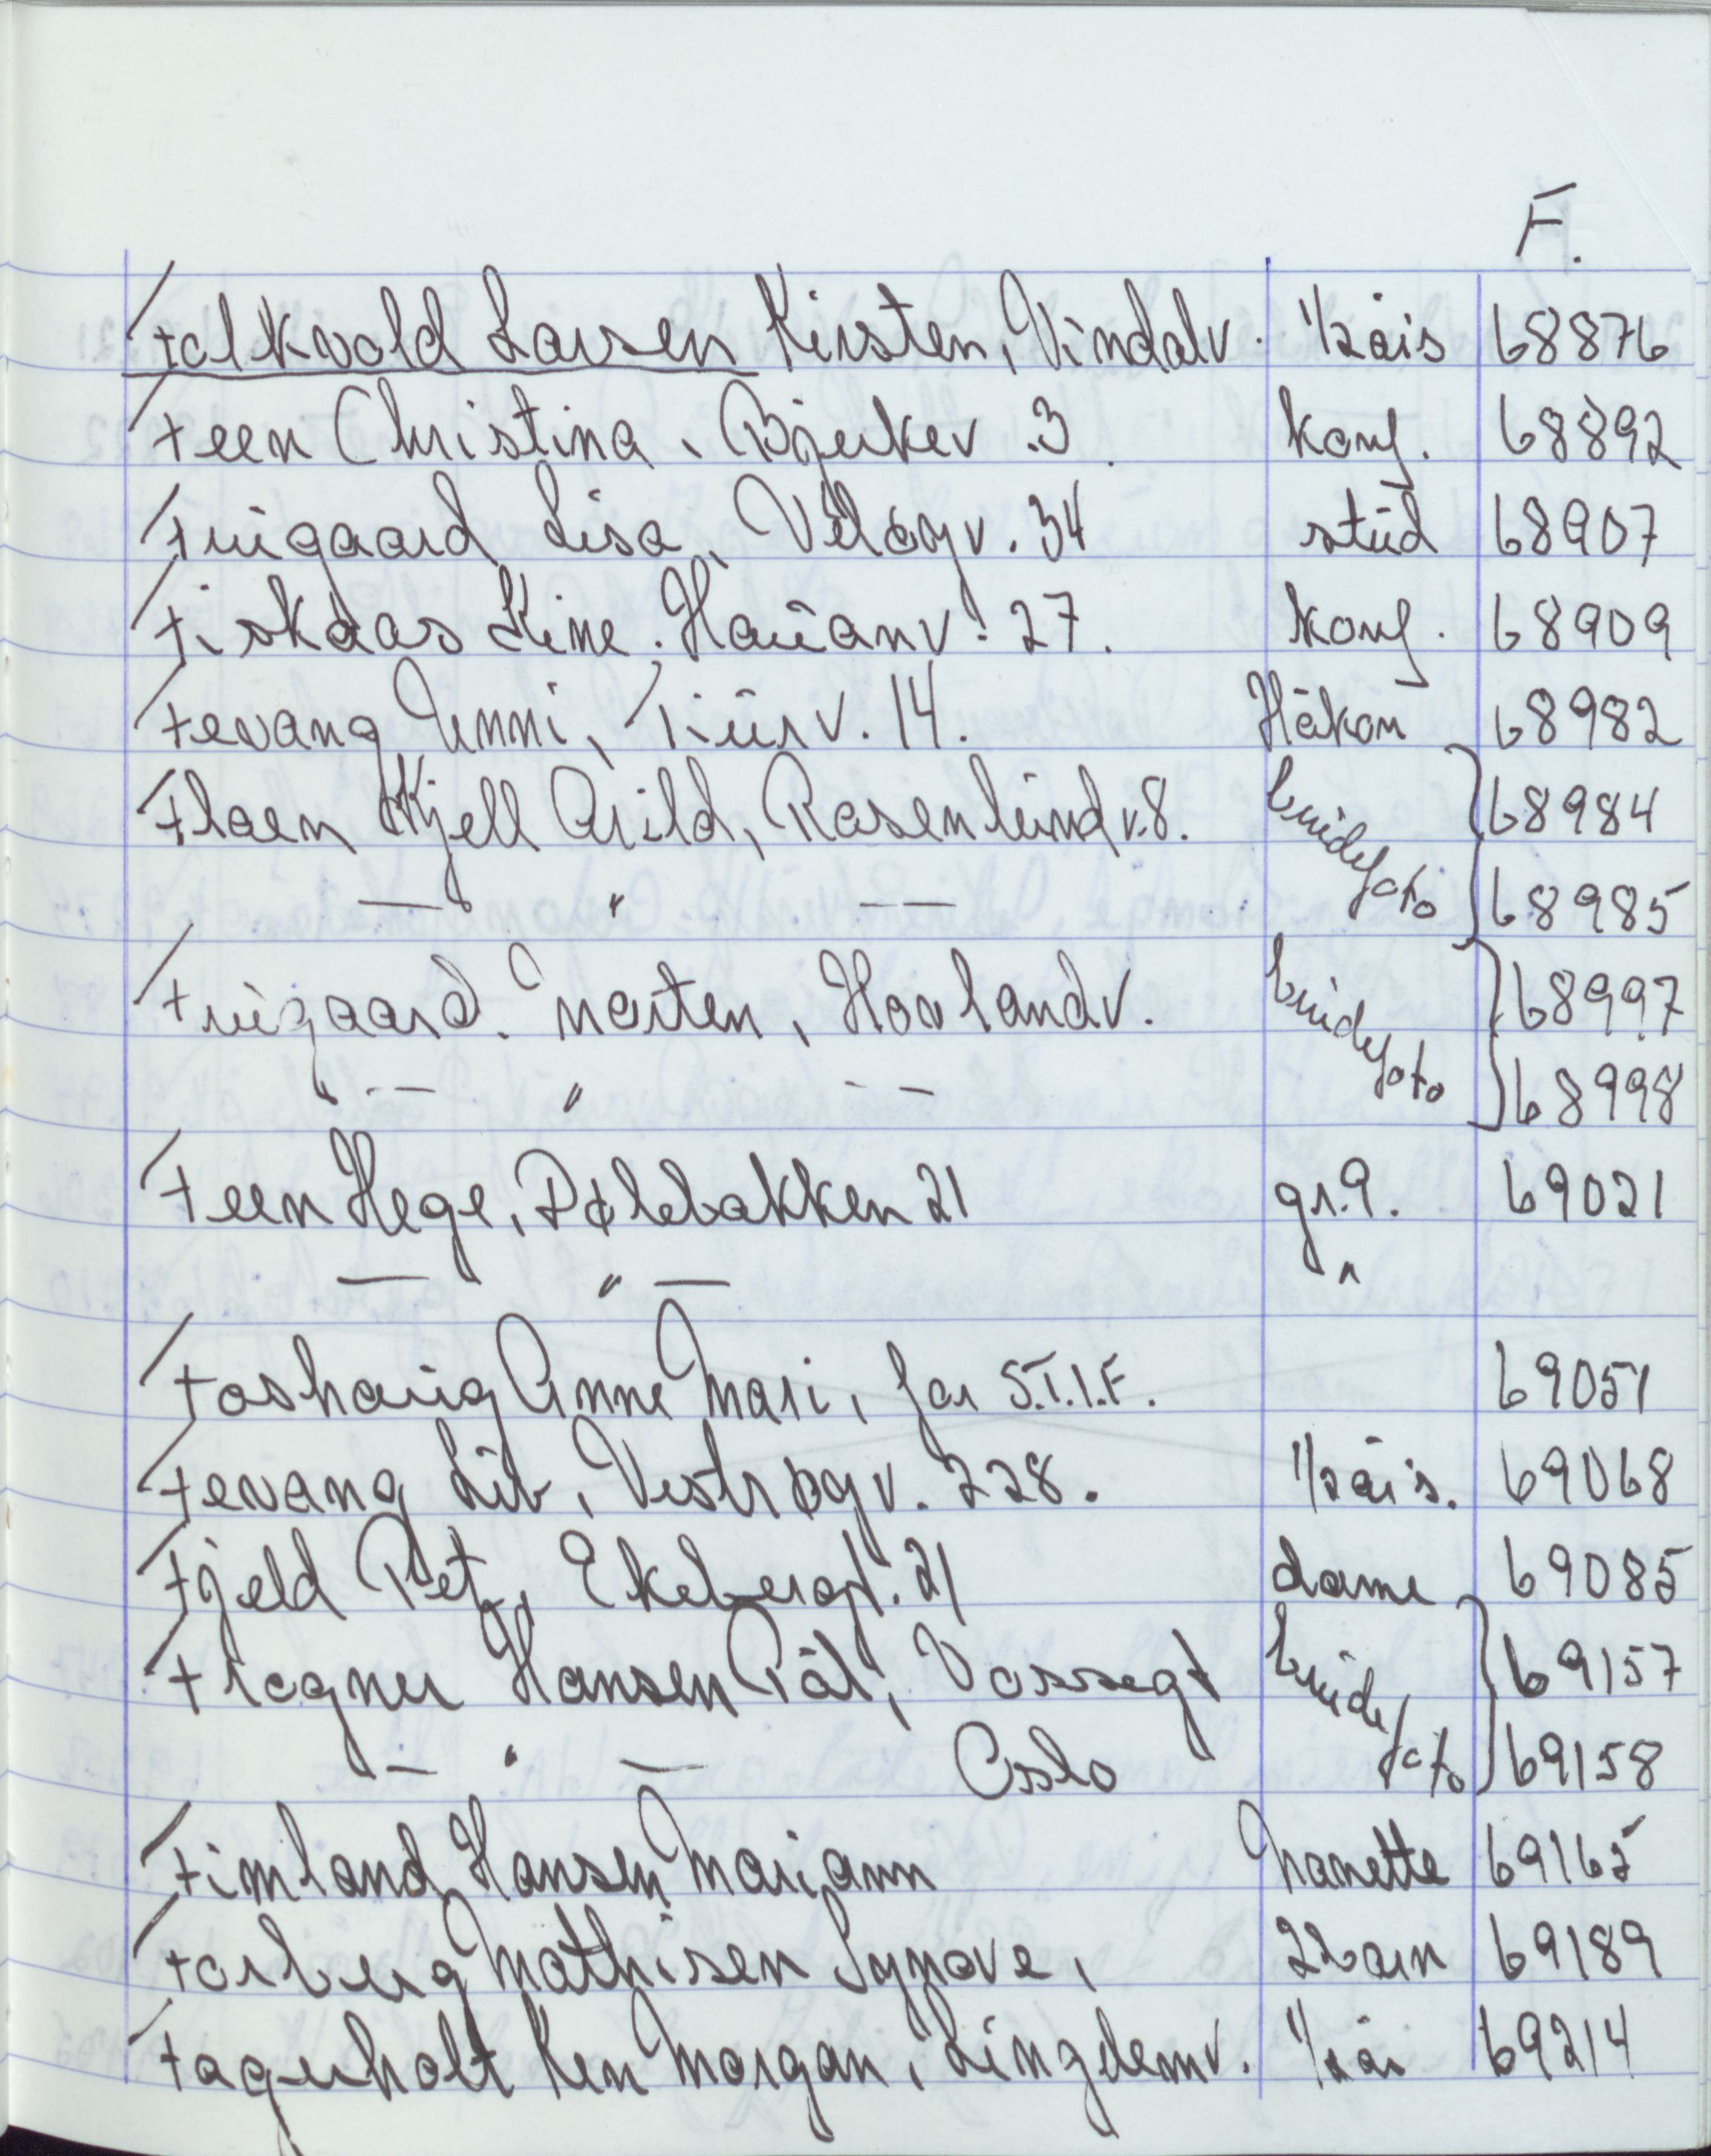 F.
Falkvold Larsen Kirsten, Vindalv. 1/2års 68876
Feen Christina, Bjerkev. 3. konf. 68892
Furigaard Lisa, Veløyv. 34 stud 68907
Fiskaas Line, Hauanv. 27. konf. 68909
Fevang Unni, Furuv. 14. Håkon 68982
Flaen Kjell Arild, Rosenlundv. 8. brudefoto 68984
— " — — 68985
Furigaard Morten, Hovlandv. brudefoto 68997
" — " — — 68998
Feen Hege, Dølebakken 21 gr. 9. 69021
— " — "
Foshaug Anne Mari, for S.T.I.F. 69051
Fevang Liv, Vestrøyv. 228. 1/2års. 69068
Fjeld Ekebergt. 21 dame 69085
Fragner Hansen Pål, Vossegt brudefoto 69157
— " — Oslo 69158
Fimland Hansen Mariann Nanette 69165
Forberg Mathisen Synøve, 2 barn 69189
Fagerholt Ken Morgan, Lingelemv. 1/2år 69214